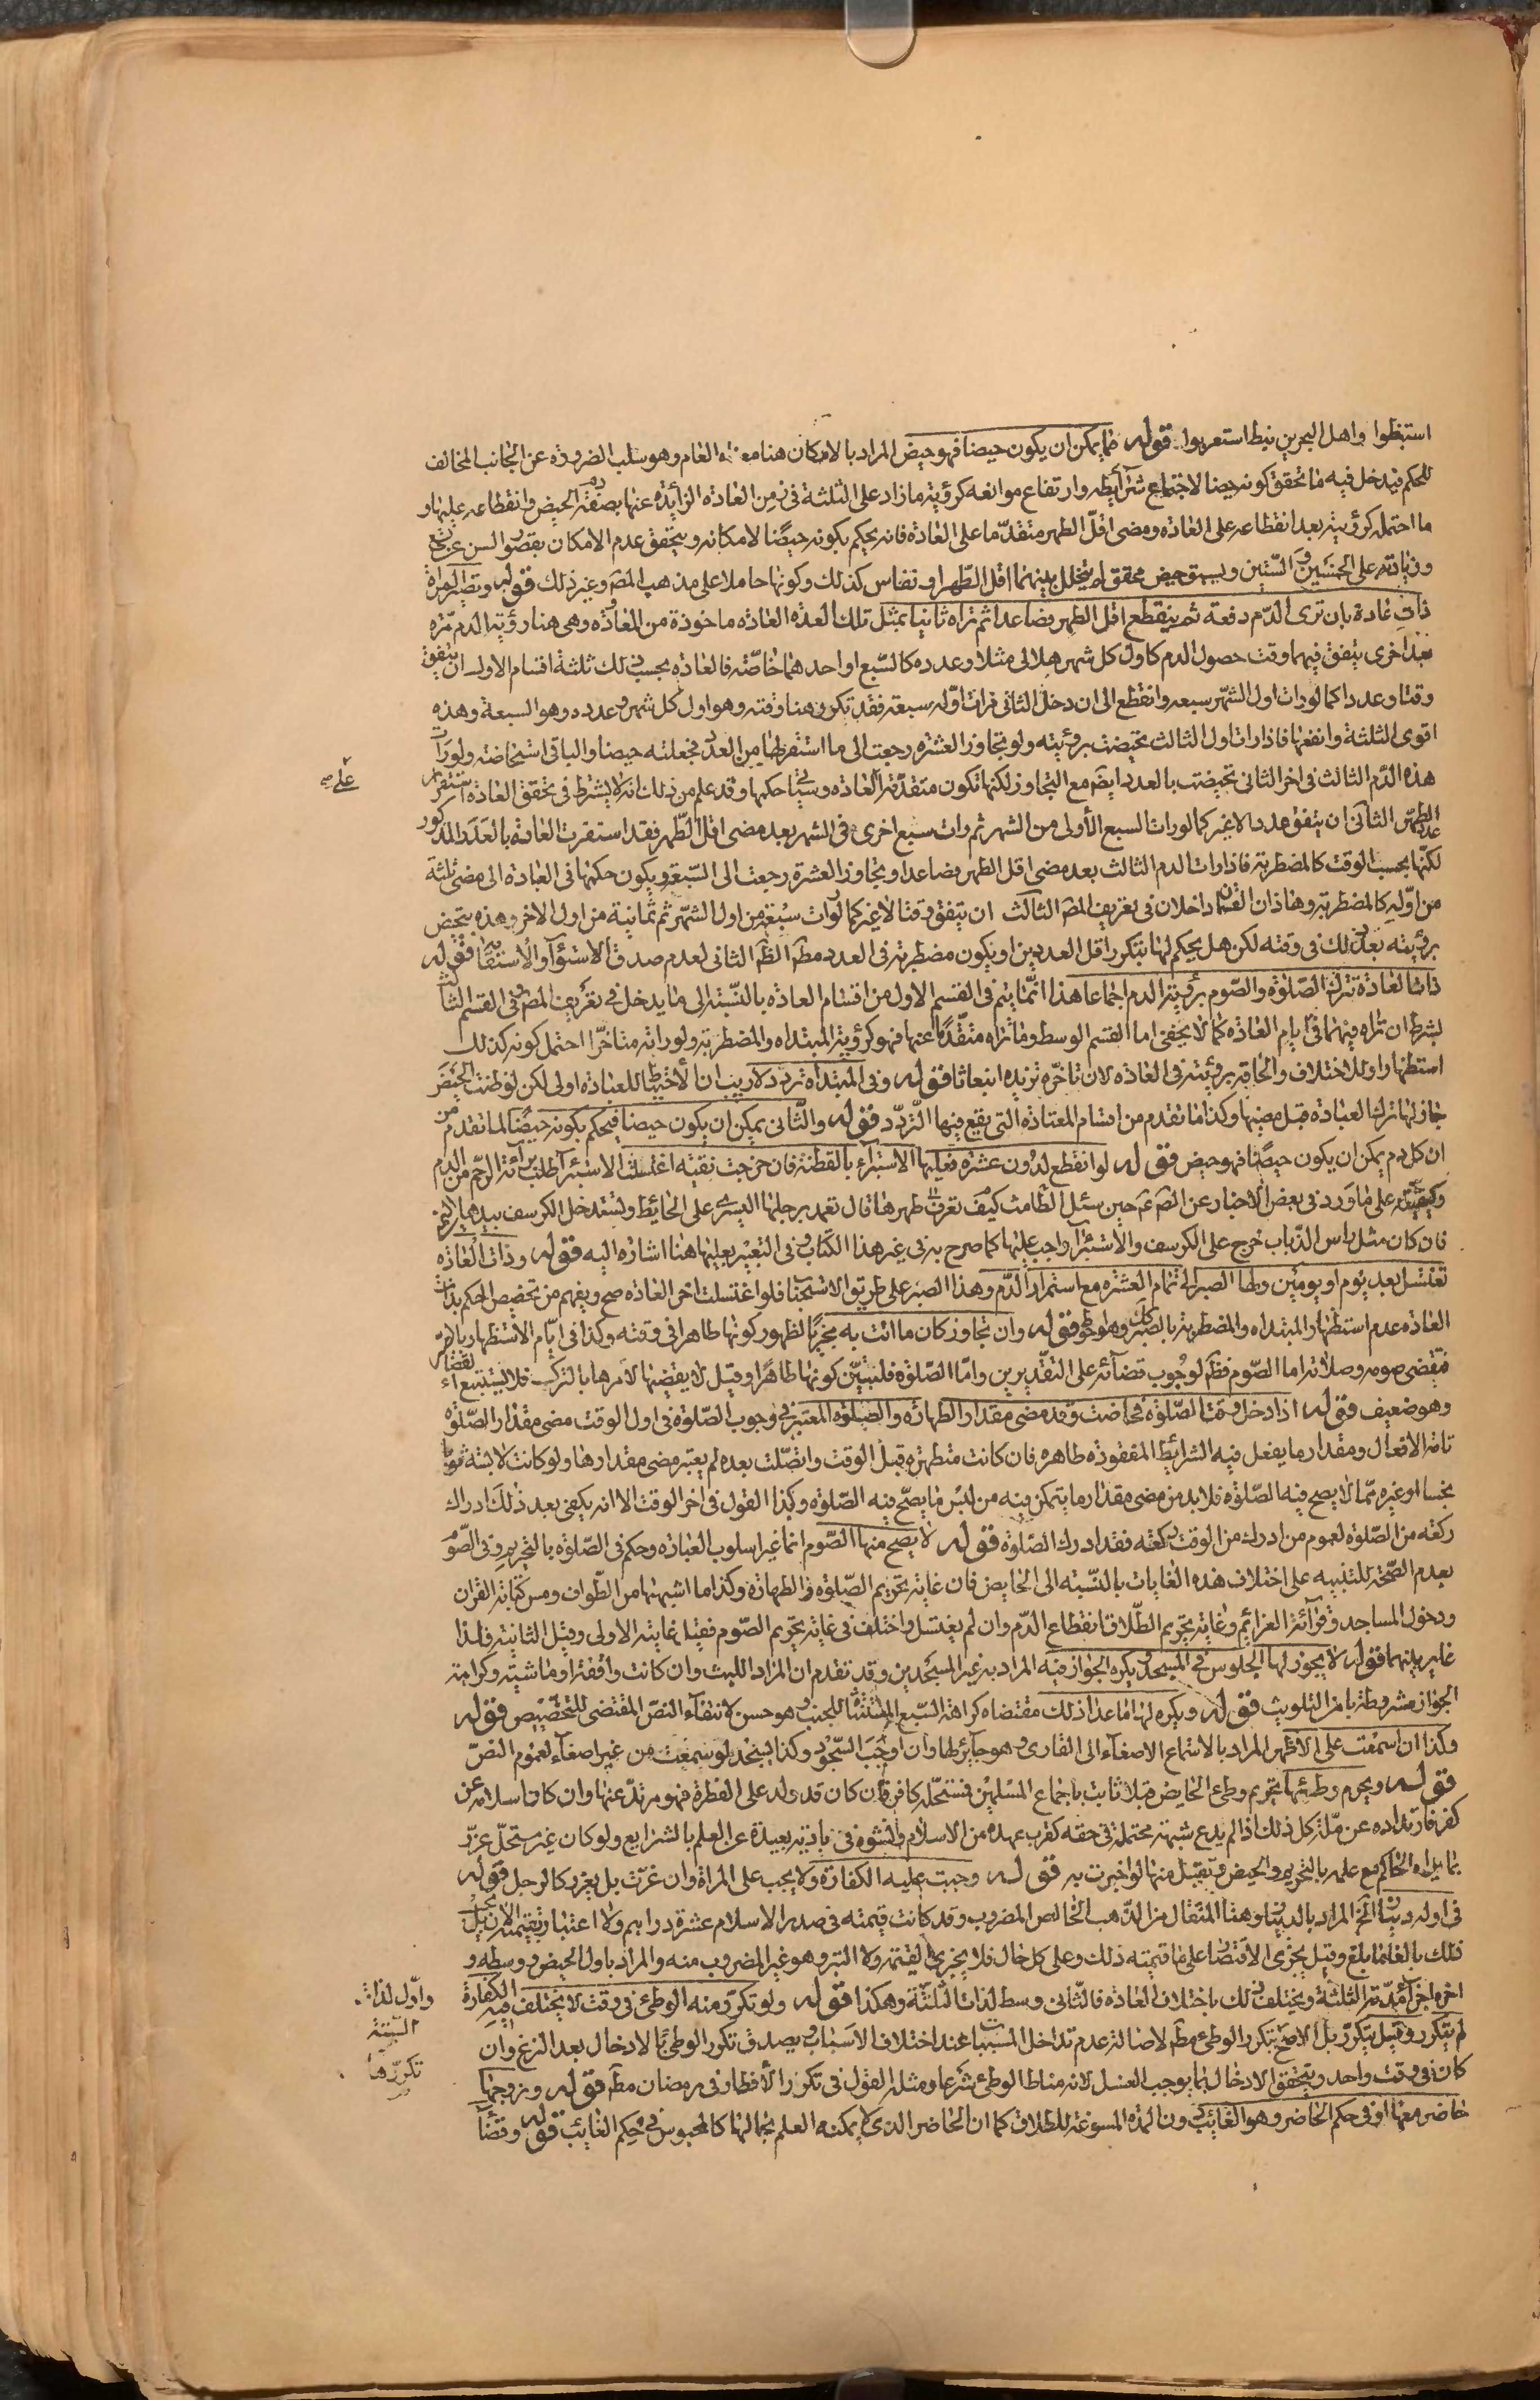 استنبطوا واهل البحرين نبيط استعربوا قوله ما يمكن ان يكون حيضا فهو حيض المراد بالامكان هنا معناه العام وهو سلب الضرورة عن الجانب المخالف
للحكم فيدخل فيه ما تحقق كونه حيضا لاجتماع شرايطه وارتفاع موانعه كرؤية ما زاد على الثلثة في زمن العادة الزائدة عنها بصفة دم الحيض وانقطاعه عليها و
ما احتمله كرؤيته بعد انقطاعه على العادة ومضى اقل الطهر متقدما على العادة فانه يحكم بكونه حيضا لامكانه ويتحقق عدم الامكان بقصور السن عن تسع
وزيادته على الخمسين والستين ويسبق حيض محقق لم يتخلل بينهما اقل الطهر او نفاس كذلك وكونها حاملا على مذهب المص وغير ذلك قوله وتصير المراة
ذات عادة بان ترى الدم دفعة ثم ينقطع اقل الطهر فصاعدا ثم تراه ثانيا بمثل تلك العدة العادة ماخوذة من المعاودة وهى هنا رؤية الدم مرة
بعد اخرى يتفق فيهما وقت حصول الدم كاول كل شهر هلالى مثلا وعدده كالسبع او احدهما خاصة فالعادة بحسب ذلك ثلثة اقسام الاول ان يتفق
وقتا وعددا كما لو رات اول الشهر سبعه وانقطع الى ان دخل الثانى فرات اوله سبعة فقد تكرر هنا وقته وهو اول كل شهر وعدده وهو السبعة وهذه
اقوى الثلثة وانفعها فاذا رات اول الثالث تحيضت برؤيته ولو تجاوز العشرة رجعت الى ما استقر لها من العدد فجعلته حيضا والباقى استحاضة ولو رات
هذه الدم الثالث في اخر الثانى تحيضت بالعدد ايضا مع التجاوز لكنها تكون متقدمة العادة وسياتي حكمها وقد علم من ذلك انه لا يشترط في تحقق العادة استقرار
عدد الطهر الثانى ان يتفق عددا لا غير كما لو رات السبع الاولى من الشهر ثم رات سبع اخرى في الشهر بعد مضى اقل الطهر فقد استقرت العادة بالعدد المذكور
لكنها بحسب الوقت كالمضطربة فاذا رات الدم الثالث بعد مضى اقل الطهر فصاعدا وتجاوز العشرة رجعت الى السبعة ويكون حكمها في العبادة الى مضى ثلثة
من اوله كالمضطربة وهذان القسمان داخلان في تعريف المص الثالث ان يتفق وقتا لا غير كما لو رات سبعة من اول الشهر ثم ثمانية من اول الاخر وهذه تتحيض
برؤيته بعد ذلك في وقته لكن هل يحكم لها بتكرر اقل العددين او يكون مضطربة في العدد مطه الظه الثانى لعدم صدق الاستواء والاستقامة قوله
ذات العادة تترك الصلوة والصوم برؤية الدم اجماعا هذا انما يتم في القسم الاول من اقسام العادة بالنسبة الى ما يدخل في تعريف المص وفي القسم الثالث
بشرط ان تراه فيهما في ايام العادة كما لا يخفى اما القسم الوسط وما تراه متقدما عنها فهو كرؤية المبتداه والمضطربة ولو راته متاخرا احتمل كونه كذلك
استظهارا وللاختلاف والحاقه برؤيته في العادة لان تاخره تزيده انبعاثا قوله وفي المبتداة تردد لا ريب ان الاحتياط للعبادة اولى لكن لو ظنت الحيض
جاز لها ترك العبادة قبل مضيها وكذا ما تقدم من اقسام المعتادة التى يقع فيها التردد قوله والثانى يمكن ان يكون حيضا فيحكم بكونه حيضا لما تقدم من
ان كل دم يمكن ان يكون حيضا فهو حيض قوله لو انقطع لدون عشرة فعليها الاستبراء بالقطنة فان خرجت نقية اغتسلت الاستبراء طلب براءة الرحم من الدم
وكيفيته على ما ورد في بعض الاخبار عن الص ع حين سئل الطامث كيف تعرف طهرها قال تعمد برجلها اليسرى على الحائط وتستدخل الكرسف بيدها اليمنى
فان كان مثل راس الذباب خرج على الكرسف والاستبراء واجب عليها كما صرح به في غير هذا الكتاب وفي التعبير بعليها هنا اشارة اليه قوله وذات العادة
تغتسل بعد يوم او يومين ولها الصبر الى تمام العشرة مع استمرار الدم وهذا الصبر على طريق الاستحباب فلو اغتسلت اخر العادة صح ويفهم من تخصيص الحكم بذات
العادة عدم استظهار المبتداه والمضطربة بالصبر كك وهو احوط قوله وان تجاوز كان ما اتت به مجزيا لظهور كونها طاهرا في وقته وكذا في ايام الاستظهار بالامر
فتقضى صومه وصلاته اما الصوم فظه لوجوب قضائه على التقديرين واما الصلوة فلتبين كونها طاهرا وقيل لا يقضيها لامرها بالترك فلا يستتبع القضاء
وهو ضعيف قوله اذا دخل وقت الصلوة فحاضت وقد مضى مقدار الطهارة والصلوة المعتبر في وجوب الصلوة في اول الوقت مضى مقدار الصلوة
تامة الافعال ومقدار ما يفعل فيه الشرائط المفقودة طاهره فان كانت متطهره قبل الوقت واتصلت بعده لم يعتبر مضى مقدارها ولو كانت لابسة ثوبا
نجسا او غيره مما لا يصح فيه الصلوة فلا بد من مضى مقدار ما يتمكن فيه من لبس ما يصح فيه الصلوة وكذا القول في اخر الوقت الا انه يكفى بعد ذلك ادراك
ركعه من الصلوة لعموم من ادرك من الوقت ركعه فقد ادرك الصلوة قوله لا يصح منها الصوم انما غير اسلوب العبارة وحكم في الصلوة بالتحريم وفي الصوم
بعدم الصحة للتنبيه على اختلاف هذه الغايات بالنسبة الى الحايض فان غاية تحريم الصلوة الطهارة وكذا ما اشبهها من الطواف ومس كتابة القران
ودخول المساجد وقراءة العزائم وغاية تحريم الطلاق انقطاع الدم وان لم يغتسل واختلف في غاية تحريم الصوم فقيل غايته الاولى وقيل الثانية فلذا
غاير بينهما قوله لا يجوز لها الجلوس في المسجد ويكره الجواز فيه المراد به غير المسجدين وقد تقدم ان المراد اللبث وان كانت واقفة او ماشية وكراهة
الجواز مشروطة بامن التلويث قوله ويكره لها ما عدا ذلك مقتضاه كراهة السبع المستثناة للجنب وهو حسن لانتفاء النص المقتضى للتخصيص قوله
وكذا ان استمعت على الاظهر المراد بالاستماع الاصغاء الى القارى وهو جائز لها وان اوجب السجود وكذا يسجد لو سمعت من غير اصغاء لعموم النص
قوله ويحرم وطئها تحريم وطى الحايض قبلا ثابت باجماع المسلمين فمستحله كافر فان كان قد ولد على الفطرة فهو مرتد عنها وان كان اسلامه عن
كفر فارتداده عن ملة كل ذلك اذا لم يدع شبهة محتملة في حقه كقرب عهده من الاسلام والنشوه في بادية بعيدة عن العلم بالشرايع ولو كان غير مستحل عزر
بما يراه الحاكم مع علمه بالتحريم والحيض ويقبل منها لو اخبرت به قوله وجبت عليه الكفارة ولا يجب على المراة وان غرت بل يعزر كالرجل قوله
في اوله دينار الخ المراد بالدينار هنا المثقال من الذهب الخالص المضروب وقد كانت قيمته في صدر الاسلام عشرة دراهم ولا اعتبار بقيمة الان بل يجب
ذلك بالغا ما بلغ وقيل يجزى الاقتصار على ما قيمته ذلك وعلى كل حال فلا يجزى القيمة ولا التبر وهو غير المضروب منه والمراد باول الحيض ووسطه و
اخره اجزاء مدته الثلثة ويختلف ذلك باختلاف العادة فالثانى وسط لذات الثلثة وهكذا قوله ولو تكرر منه الوطئ في وقت لا يختلف فيه الكفارة
لم يتكرر وقيل يتكرر بل الاصح تتكرر الوطى مطه لاصالة عدم تداخل المسببات عند اختلاف الاسباب ويصدق تكرر الوطى بالادخال بعد النزع وان
كان في وقت واحد ويتحقق الادخال بما يوجب الغسل لانه مناط الوطى شرعا ومثله القول في تكرر الافطار في رمضان مطه قوله وزوجها
حاضر معها او في حكم الحاضر وهو الغائب دون المدة المسوغة للطلاق كما ان الحاضر الذى لا يمكنه العلم بحالها كالمحبوس في حكم الغائب قوله وقضاء
واول لذات
الستة
تكررها